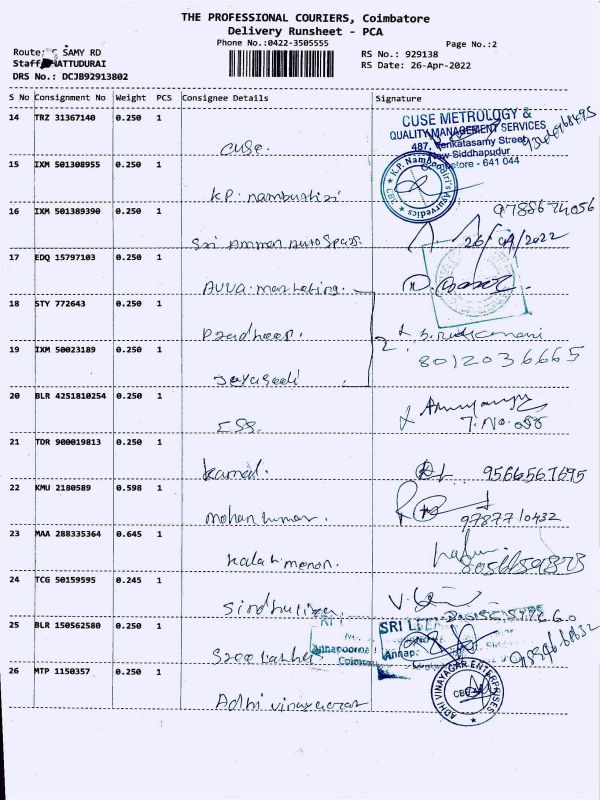 THE PROFESSIONAL COURIERS, Coimbatore
Delivery Runsheet - PCA
Phone No.:0422-3505555
Page No.:2
SAMY RD
RS No.: 929138
RS Date: 26-Apr-2022
DRS No.: DCJB92913802
S No Consignment No Weight PCS Consignee Details Signature
14 TRZ 31367140 0.250 1
CUSE METROLOGY &
QUALITY MANAGEMENT SERVICES
487, Venkatasamy Street,
New Siddhapudur
- 641 044
cuse.
15 IXM 501308955 0.250 1
K.P. Namboodiri's Ayurvedics
K.P. nambudizi
16 IXM 501389390 0.250 1
9788674056
Sri Amman Auto Spass
26/04/2022
17 EDQ 15797103 0.250 1
AVVA marketing.
18 STY 772643 0.250 1
Pradheep.
19 IXM 50023189 0.250 1
2
8012036665
20 BLR 4251810254 0.250 1
ESS.
21 TDR 900019813 0.250 1
kamal.
9566567695
22 KMU 2180589 0.598 1
mohan kumar.
9787710432
23 MAA 288335364 0.645 1
kala h menon.
24 TCG 50159595 0.245 1
25 BLR 150562580 0.250 1
SRI
Annapoorna
Sree Lakha
26 MTP 1150357 0.250 1
ADHI VINAYAGAR ENTERPRISES
CBE
Adhi vinayagar